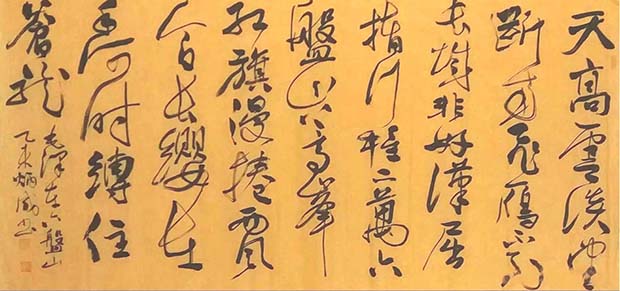 天高雲淡望
断南飛雁不到
長城非好漢屈
指行程二萬六
盤山上高峰
红旗漫捲西風
今日長纓在
手何时縛住
蒼龍
毛澤东六盤山
乙未炳